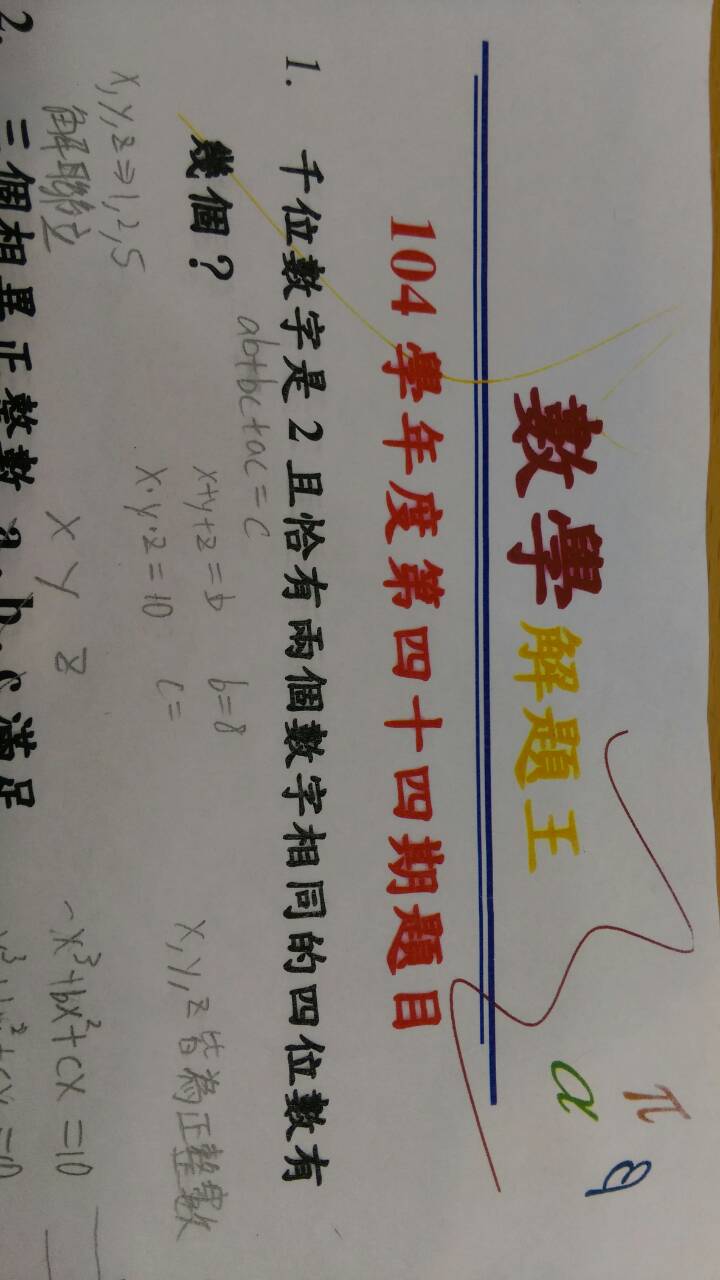 π
α
數學解題王
104學年度第四十四期題目
1. 千位數字是2且恰有兩個數字相同的四位數有
幾個？
ab+bc+ac=c
x+y+z=b b=8
x·y·z=10 c=
x,y,z皆為正整數
x,y,z⇒1,2,5
解聯立
x y z
-x³+bx²+cx=10
2. 三個相異正整數 a、b、c 滿足